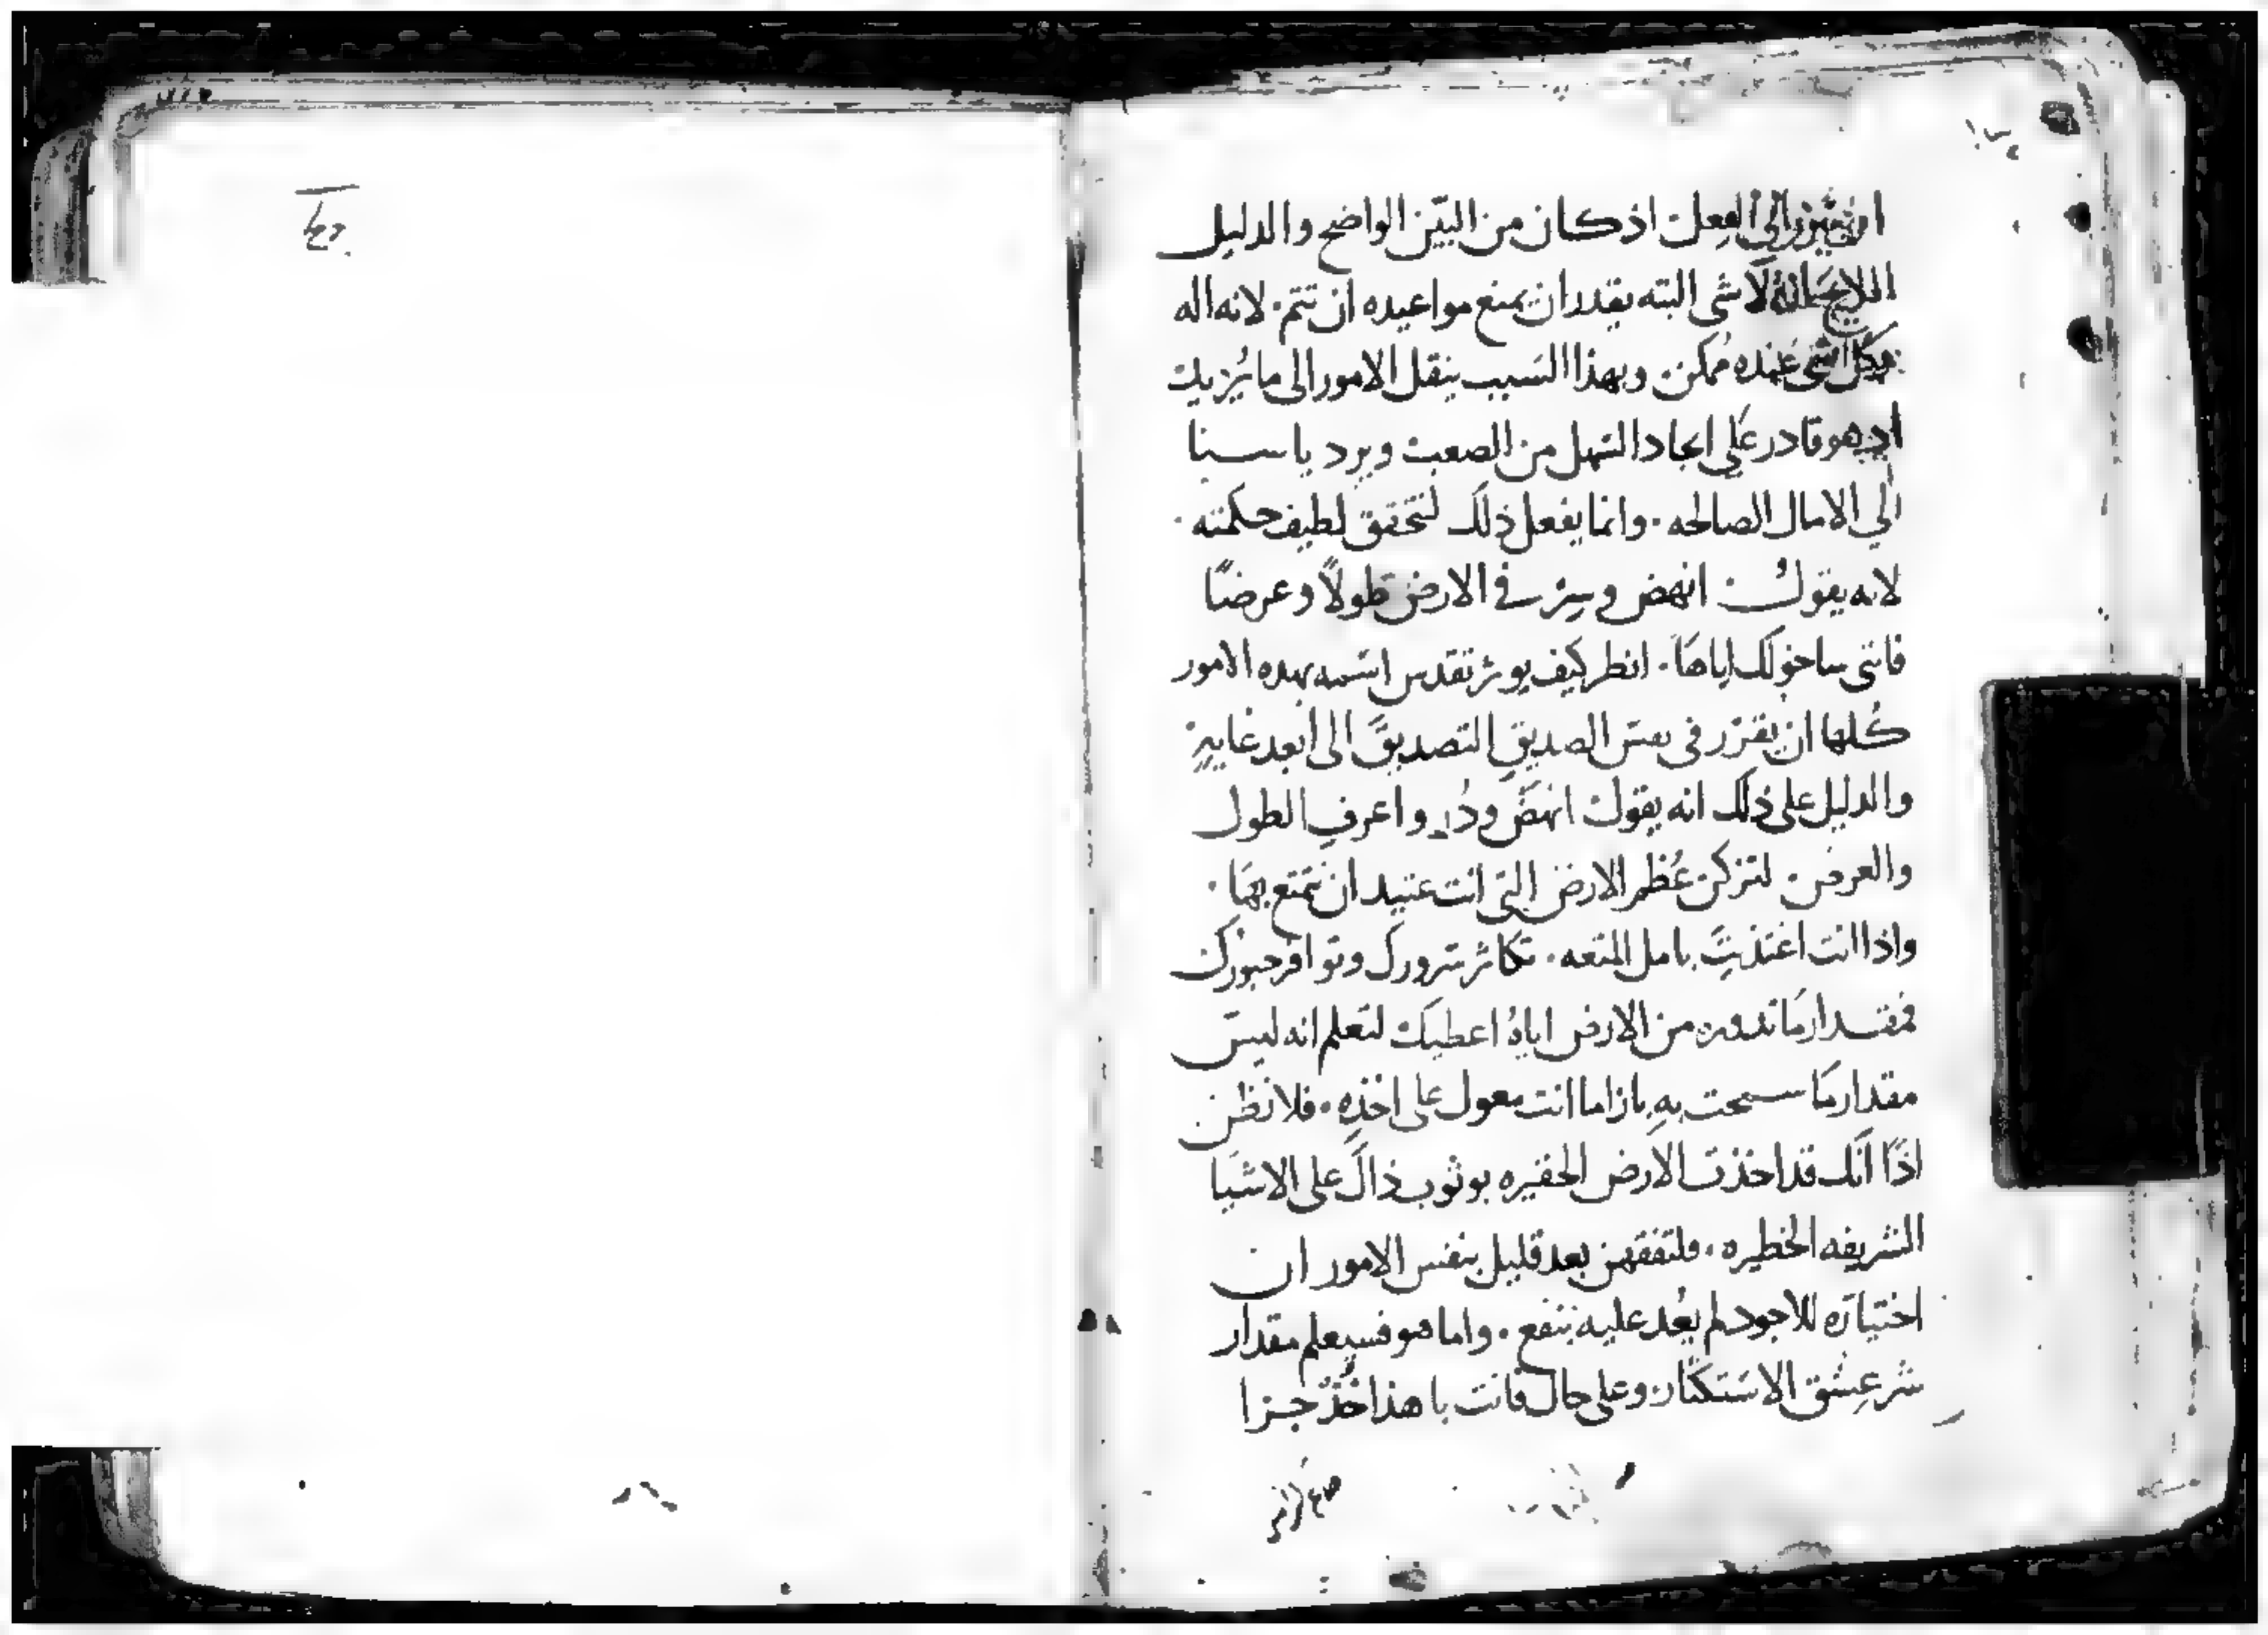 اذ كان من البيّن الواضح والدليل
لاشى البته يقدر ان يمنع مواعيده ان تتم. لانه اله
عنده مُمكن وبهذا السَبب ينقل الامور الى ما يُريد
اذ هو قادر على ايجاد السَهل من الصعب ويرد يا سنا
الي الامال الصالحه. وانما يفعل ذلك لتحقق لطيف حكمته.
لانه يقولُ انهض وسِرْ في الارض طولاً وعرضًا
فانني ساحولك اياهَا. انظر كيف يوثر تقدس اسَمه بهده الامور
كلها ان يقرّر في نفسَ الصديقِ التصديقَ الى ابعد غايهٍ
والدليل على ذلك انه يقول انهَض ودُر واعرفِ الطول
والعرض. لتزكن عُظم الارض التي انت عتيد ان تتمتع بهَا.
واذا انت اغتذيتَ بامل المتعه. تكاثر سَرورك وتوافر حبورك
فمقدار مَا تدوره من الارض اياهُ اعطيك لتعلم انه ليسَ
مقدار مَا سمحت بهِ بازا ما انت معول على اخذهِ. فلا تظن
اذًا انك قد اخذت الارض الحقيره بوثوب ذاك على الاشيَا
الشريفه الخطيره. فلتفقهن بعد قليل بنفس الامور ان
اختيارَه للاجود لم يعُد عليه بنفع. واما هو فسيعلم مقدار
شر عِشق الاسَتكثار وعلى حال فانت يا هذا خُذ جزا